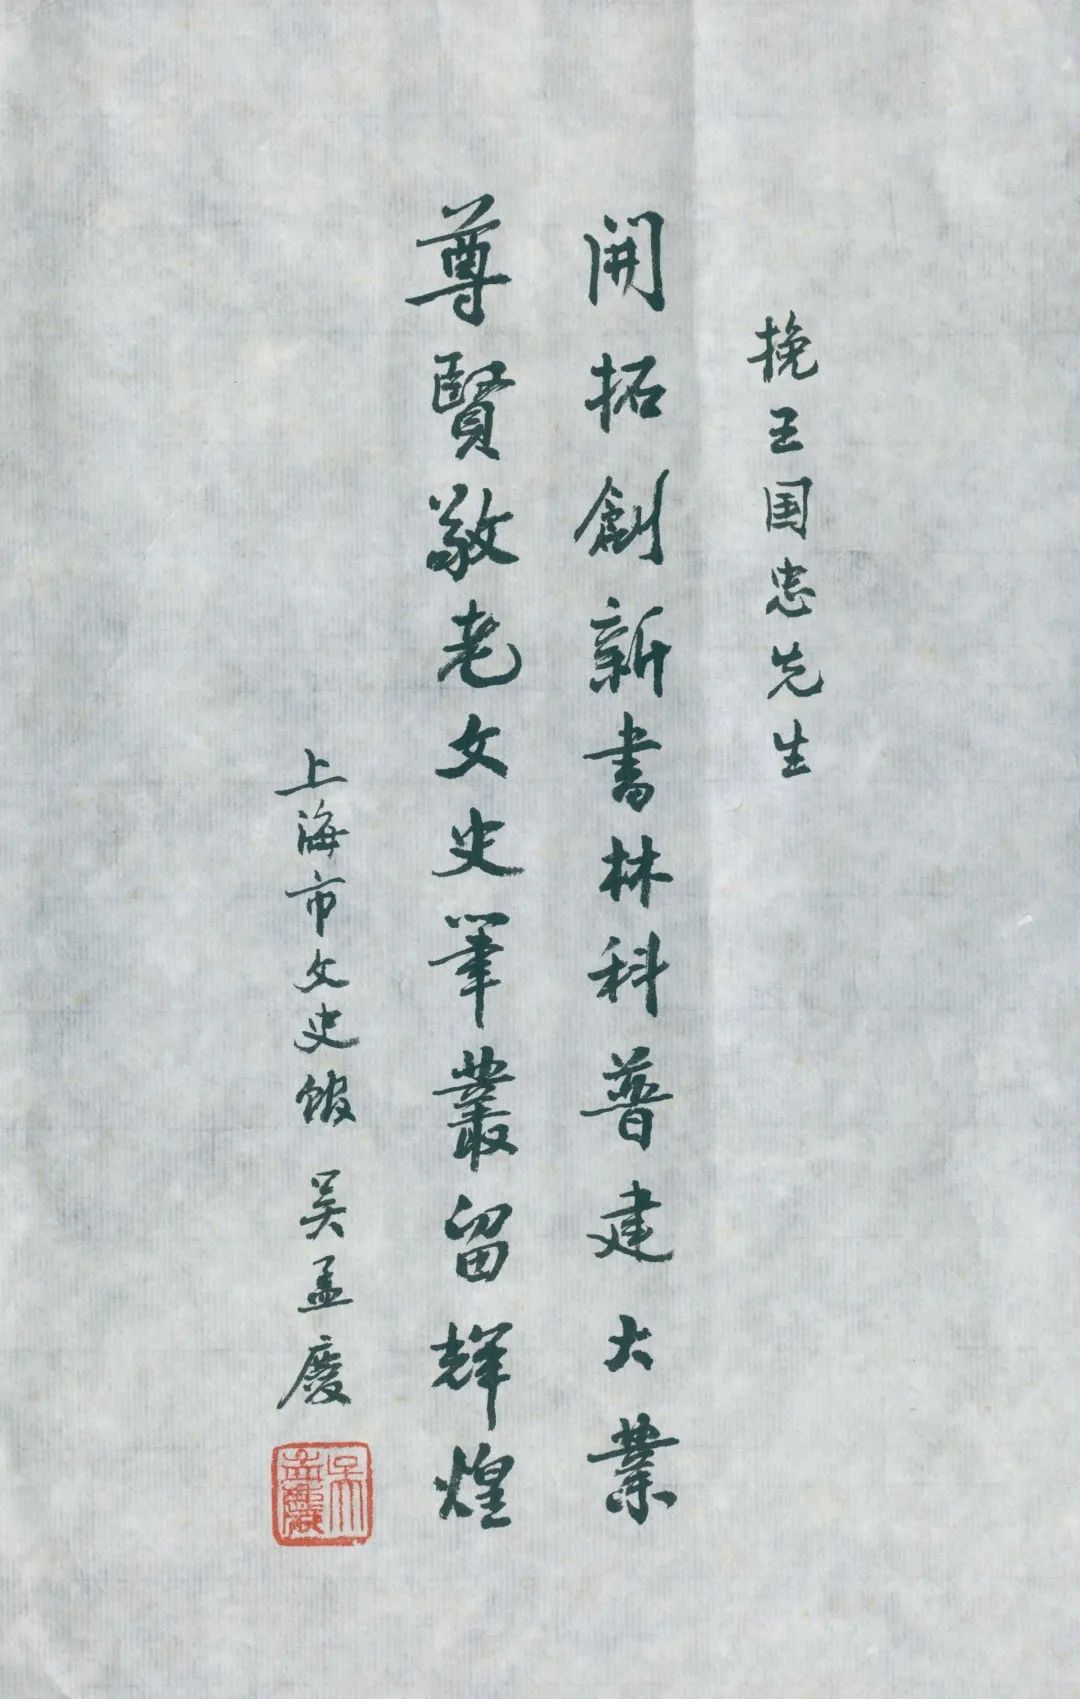 挽王国忠先生
開拓創新書林科普建大業
尊賢敬老文史筆叢留輝煌
上海市文史館 吴孟慶
吴孟慶